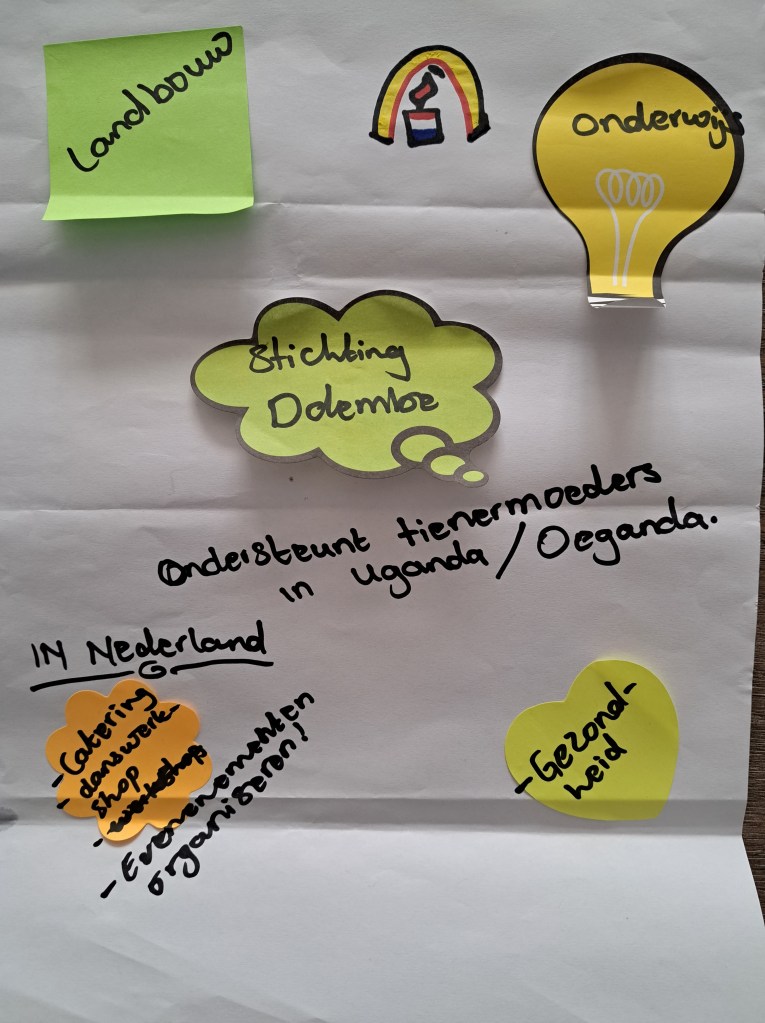 Landbouw
Onderwijs
Stichting
Dolembe
Ondersteunt tienermoeders
in Uganda / Oeganda.
IN Nederland
- Catering
- danswerk-
shop
- workshops
- Evenementen
organiseren!
- Gezond-
heid